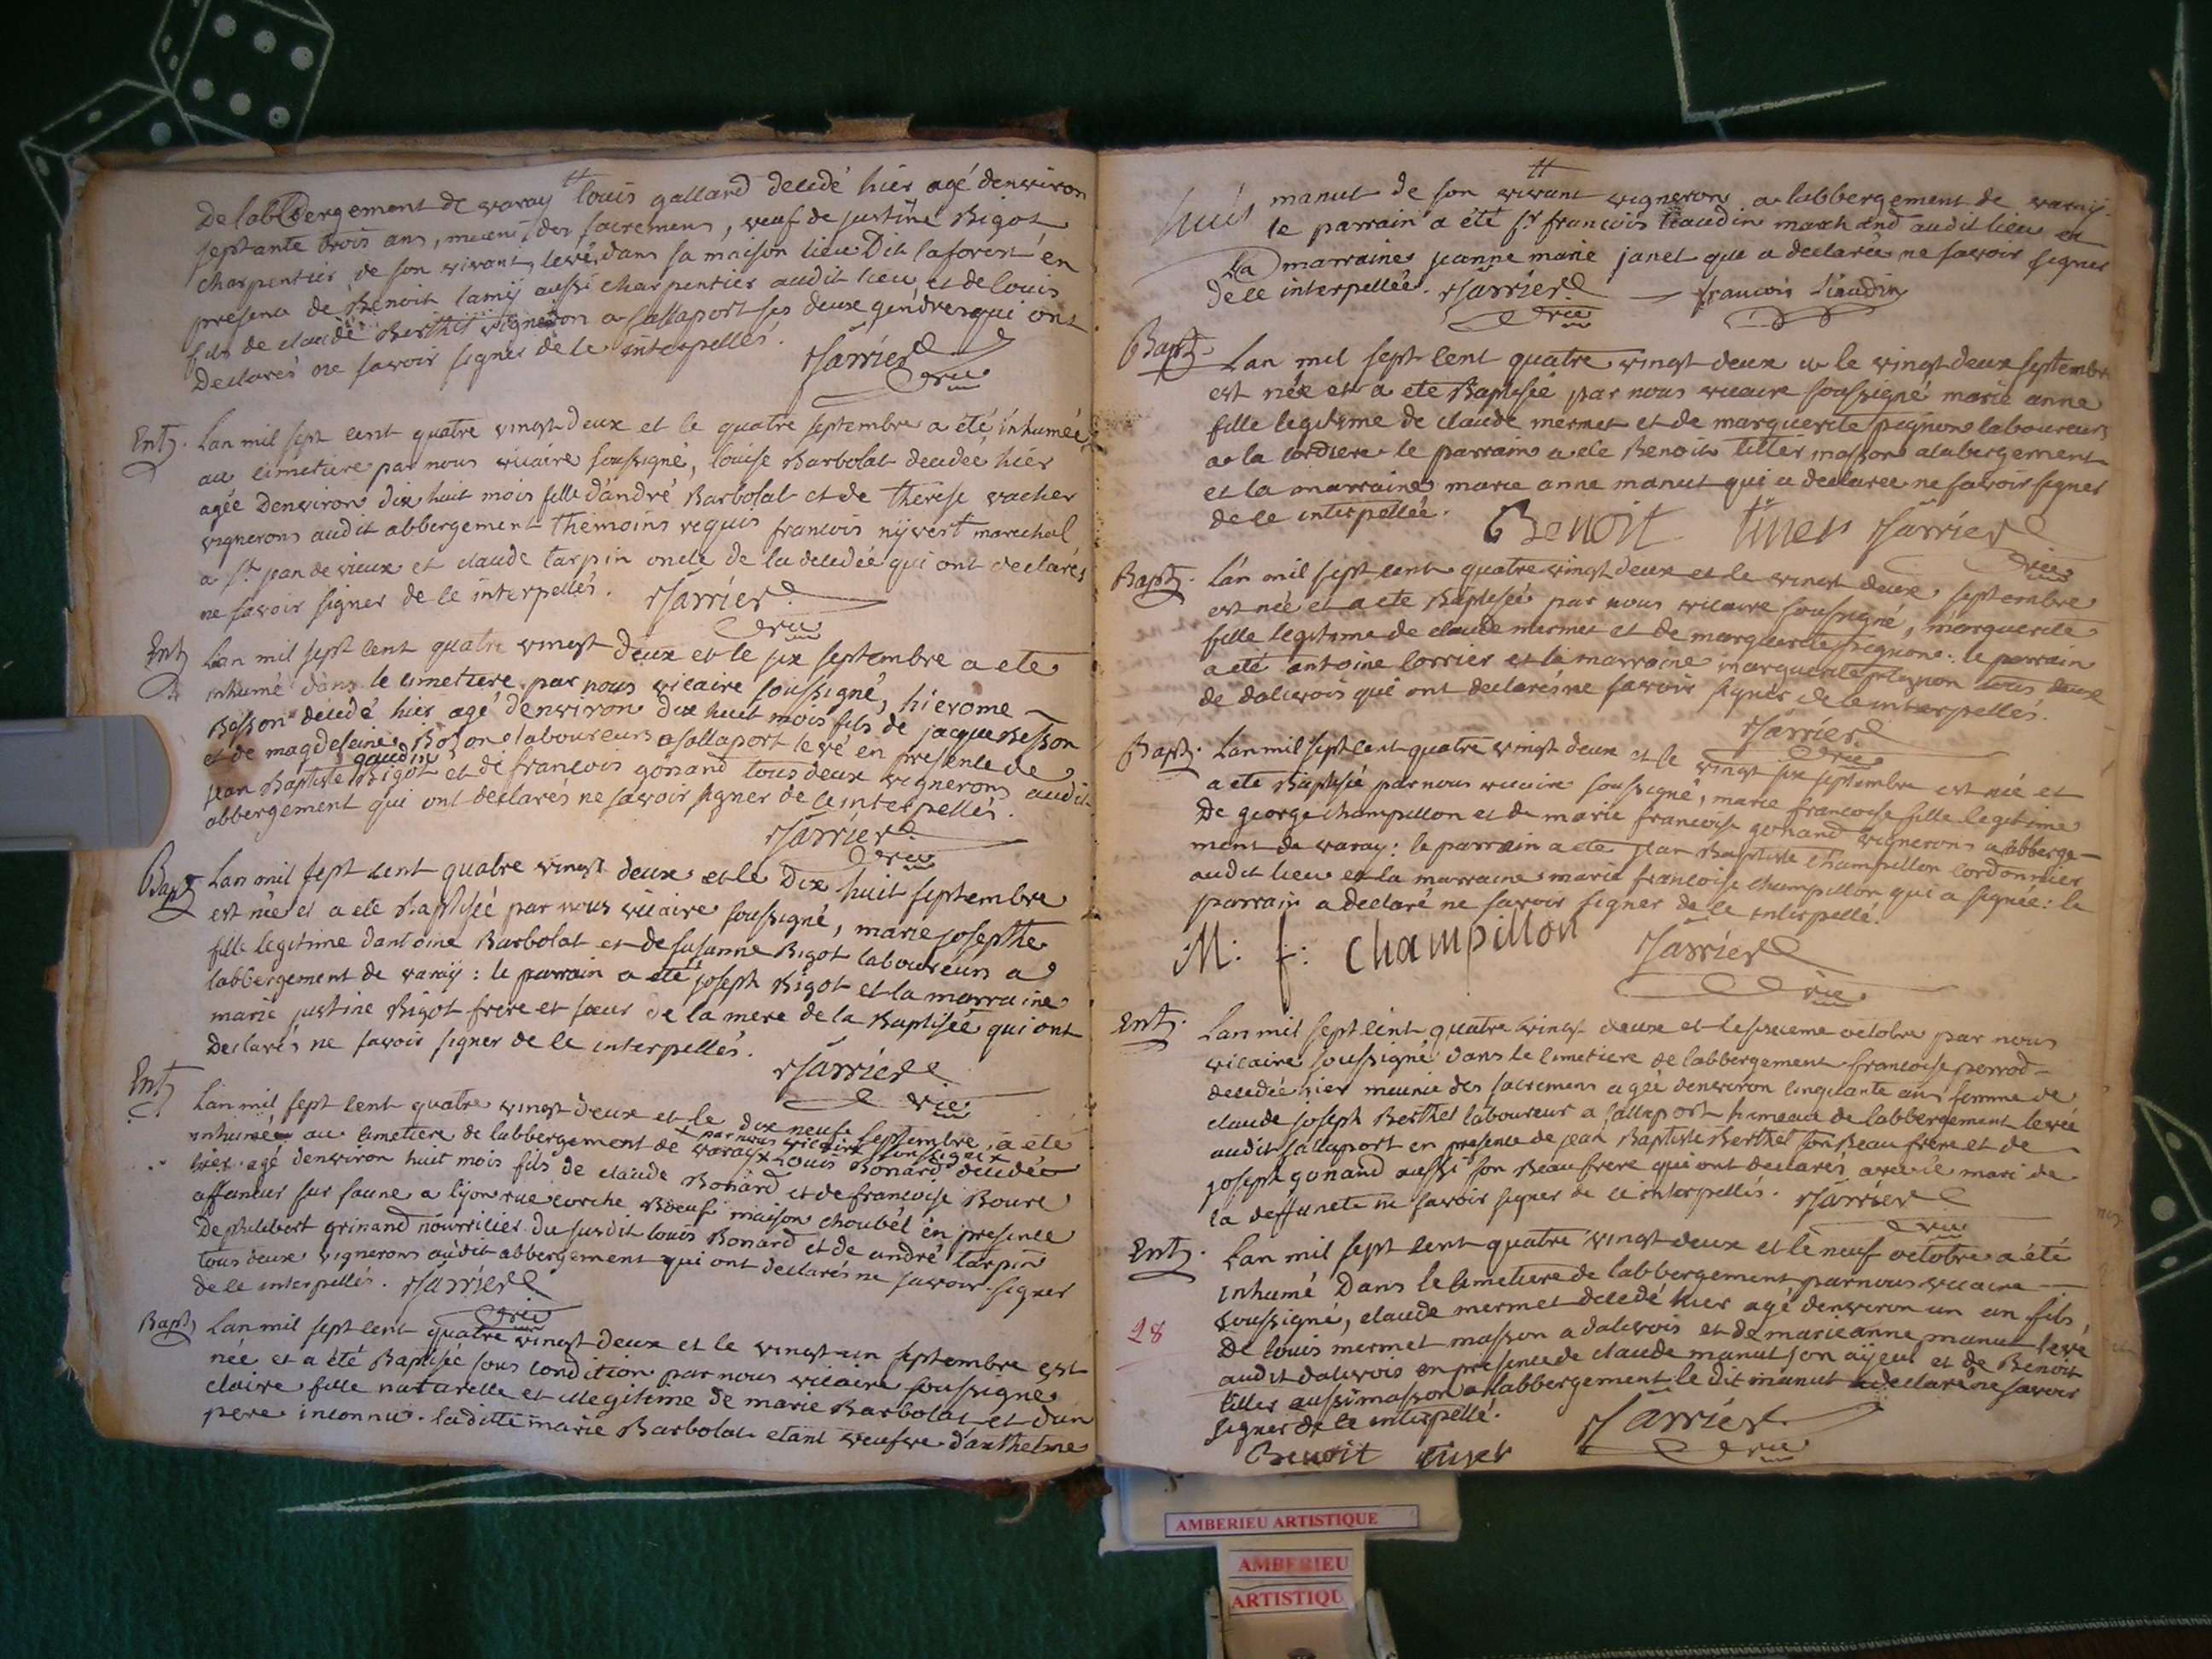 De labbergement de varay louis galland decedé hier agé denviron
septante trois ans, muni des sacremens, veuf de justine Bigot
charpentier de son vivant, levé dans sa maison lieu Dit laforest en
presence de Benoit lamy aussi charpentier audit lieu et de louis
fils de claude Berthet vigneron a sallaport ses deux gendres qui ont
Declarés ne savoir signer de ce interpellés.
Sarrier
vic
Ent. Lan mil sept cent quatre vingt deux et le quatre septembre a été inhumée
au cimetiere par nous vicaire soussigné, louise Barbolat decedée hier
agée denviron dix huit mois fille d'andré Barbolat et de therese vacher
vignerons audit abbergement thémoins requis francois nyvert marechal
a st jean de vieux et claude tarpin oncle de la decedée qui ont declarés
ne savoir signer de ce interpellés. Sarrier
vic
Ent. Lan mil sept cent quatre vingt deux et le six septembre a ete
inhumé dans le cimetiere par nous vicaire soussigné, hierome
Besson decedé hier agé denviron dix huit mois fils de jacque Besson
et de magdeleine Bozon laboureurs a sallaport levé en presence de
gaudin
jean Baptiste Bigot et de francois gonand tous deux vignerons audit
abbergement qui ont declarés ne savoir signer de ce interpellés.
Sarrier
vic
Bapt. Lan mil sept cent quatre vingt deux et le Dix huit septembre
est née et a eté Baptisée par nous vicaire soussigné, marie josephte
fille legitime dantoine Barbolat et de susanne Bigot laboureurs a
labbergement de varay : le parrain a eté joseph Bigot et la marraine
marie justine Bigot frere et sœur de la mere de la Baptisée qui ont
Declarés ne savoir signer de ce interpellés.
Sarrier
vic
Ent. Lan mil sept cent quatre vingt deux et le dix neuf septembre a été
par nous vicaire soussigné
inhumé au cimetiere de labbergement de varay louis Bonard decedé
hier agé denviron huit mois fils de claude Bonard et de francoise Boure
affaneur sur saune a lyon rue ecorche Boeuf maison choubél en presence
De philibert grinand nourricier du susdit louis Bonard et de andré tarpin
tous deux vignerons audit abbergement qui ont declarés ne savoir signer
de ce interpellés. Sarrier
vic
Bapt. Lan mil sept cent quatre vingt deux et le vingt un septembre est
née et a été Baptisée sous condition par nous vicaire soussigné
claire fille naturelle et illegitime de marie Barbolat et dun
pere inconnu. laditte marie Barbolat etant veufve danthelme
manut de son vivant vigneron a labbergement de varay
le parrain a été sr francois liaudin marchand audit lieu et
La marraine jeanne marie janet qui a declarée ne savoir signer
de ce interpellée. Sarrier francois liaudin
vic
Bapt. Lan mil sept cent quatre vingt deux et le vingt deux septembre
est née et a ete Baptisée par nous vicaire soussigné marie anne
fille legitime de claude mermet et de marguerite pignon laboureurs
a la cordiere le parrain a ete Benoit titter masson alabergement
et la marraine marie anne manut qui a declaree ne savoir signer
de ce interpellée. Benoit titter Sarrier
vic
Bapt. Lan mil sept cent quatre vingt deux et le vingt deux septembre
est née et a ete Baptisée par nous vicaire soussigné, marguerite
fille legitime de claude mermet et de marguerite pignon : le parrain
a été antoine lorrier et la marraine marguerite pignon tous deux
de dalivois qui ont declarés ne savoir signer de ce interpellés.
Sarrier
vic
Bapt. Lan mil sept cent quatre vingt deux et le vingt six septembre est né et
a ete Baptisé par nous vicaire soussigné, marie francoise fille legitime
De george champillon et de marie francoise gonand vignerons a labberge-
ment de varay : le parrain a ete jean Baptiste champillon cordonnier
audit lieu et la marraine marie francoise champillon qui a signée : le
parrain a declaré ne savoir signer de ce interpellé.
M : f : champillon Sarrier
vic
Ent. Lan mil sept cent quatre vingt deux et le sixieme octobre par nous
vicaire soussigné dans le cimetiere de labbergement francoise perrod
decedée hier meunie des sacremens agée denviron cinquante ans femme de
claude joseph Berthet laboureur a sallaport hameau de labbergement levée
audit sallaport en presence de jean Baptiste Berthet son Beau frere et de
joseph gonand aussi son Beau frere qui ont declarés avec le mari de
la deffuncte ne savoir signer de ce interpellés. Sarrier
vic
Ent. Lan mil sept cent quatre vingt deux et le neuf octobre a été
inhumé Dans le cimetiere de labbergement par nous vicaire
soussigné, claude mermet decedé hier agé denviron un an fils
28
De louis mermet masson a dalivois et de marie anne manut levé
audit dalivois en presence de claude manut son ayeul et de Benoit
titter aussi masson a labbergement le dit manut a declaré ne savoir
signer de ce interpellé. Sarrier
Benoit titter vic
AMBERIEU ARTISTIQUE
AMBERIEU
ARTISTIQU